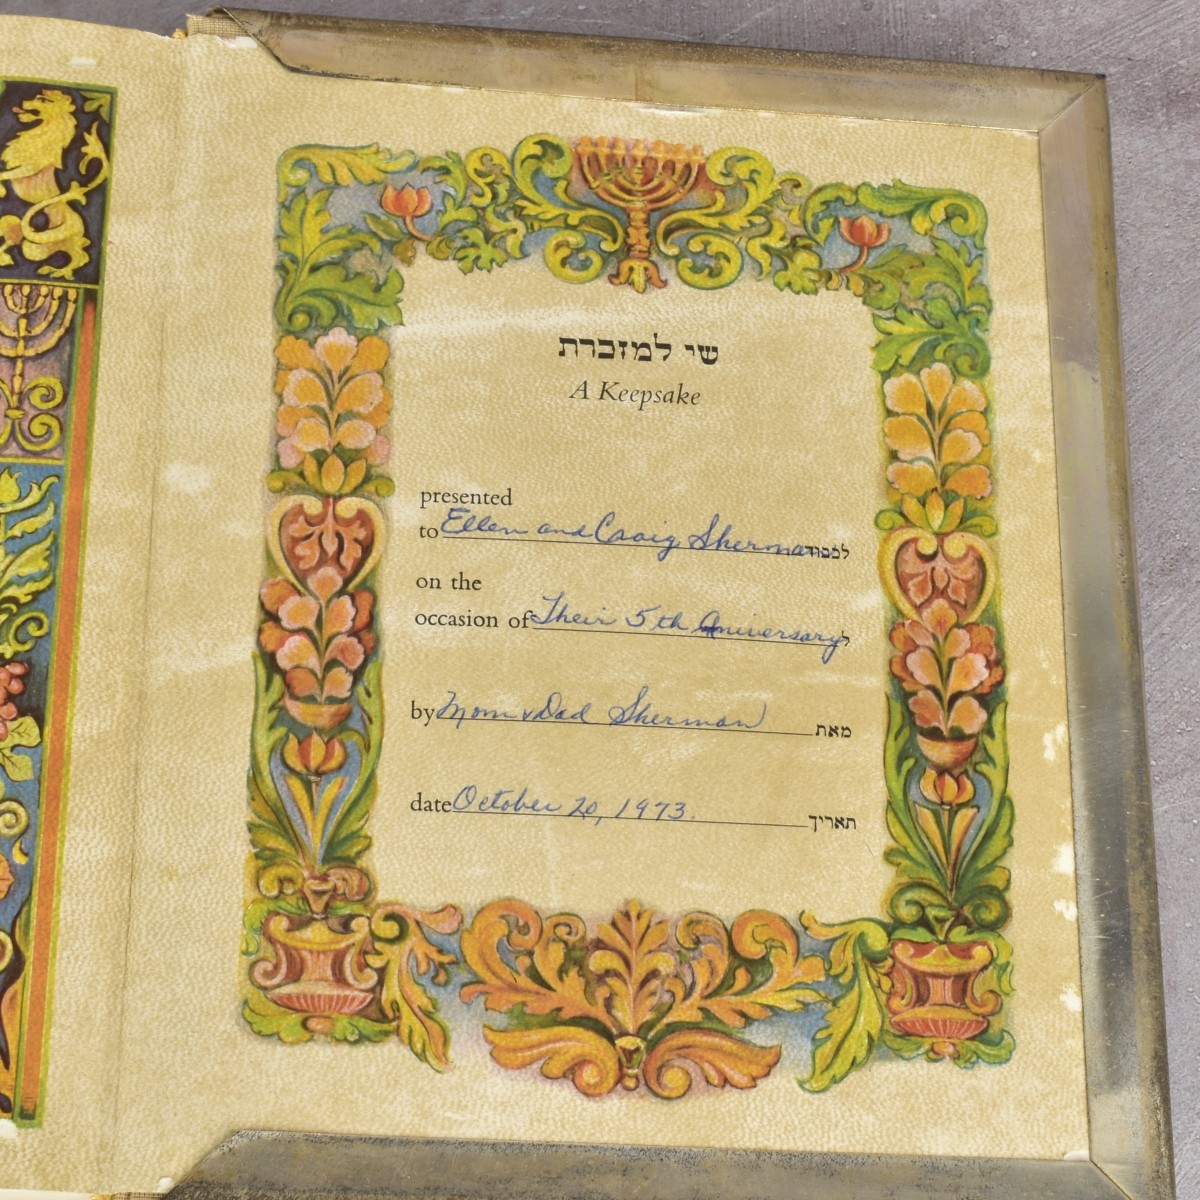 שי למזכרת
A Keepsake
presented
to Ellen and Craig Sherman לכבוד
on the
occasion of Their 5th Aniversary ל
by Mom & Dad Sherman מאת
date October 20, 1973. תאריך